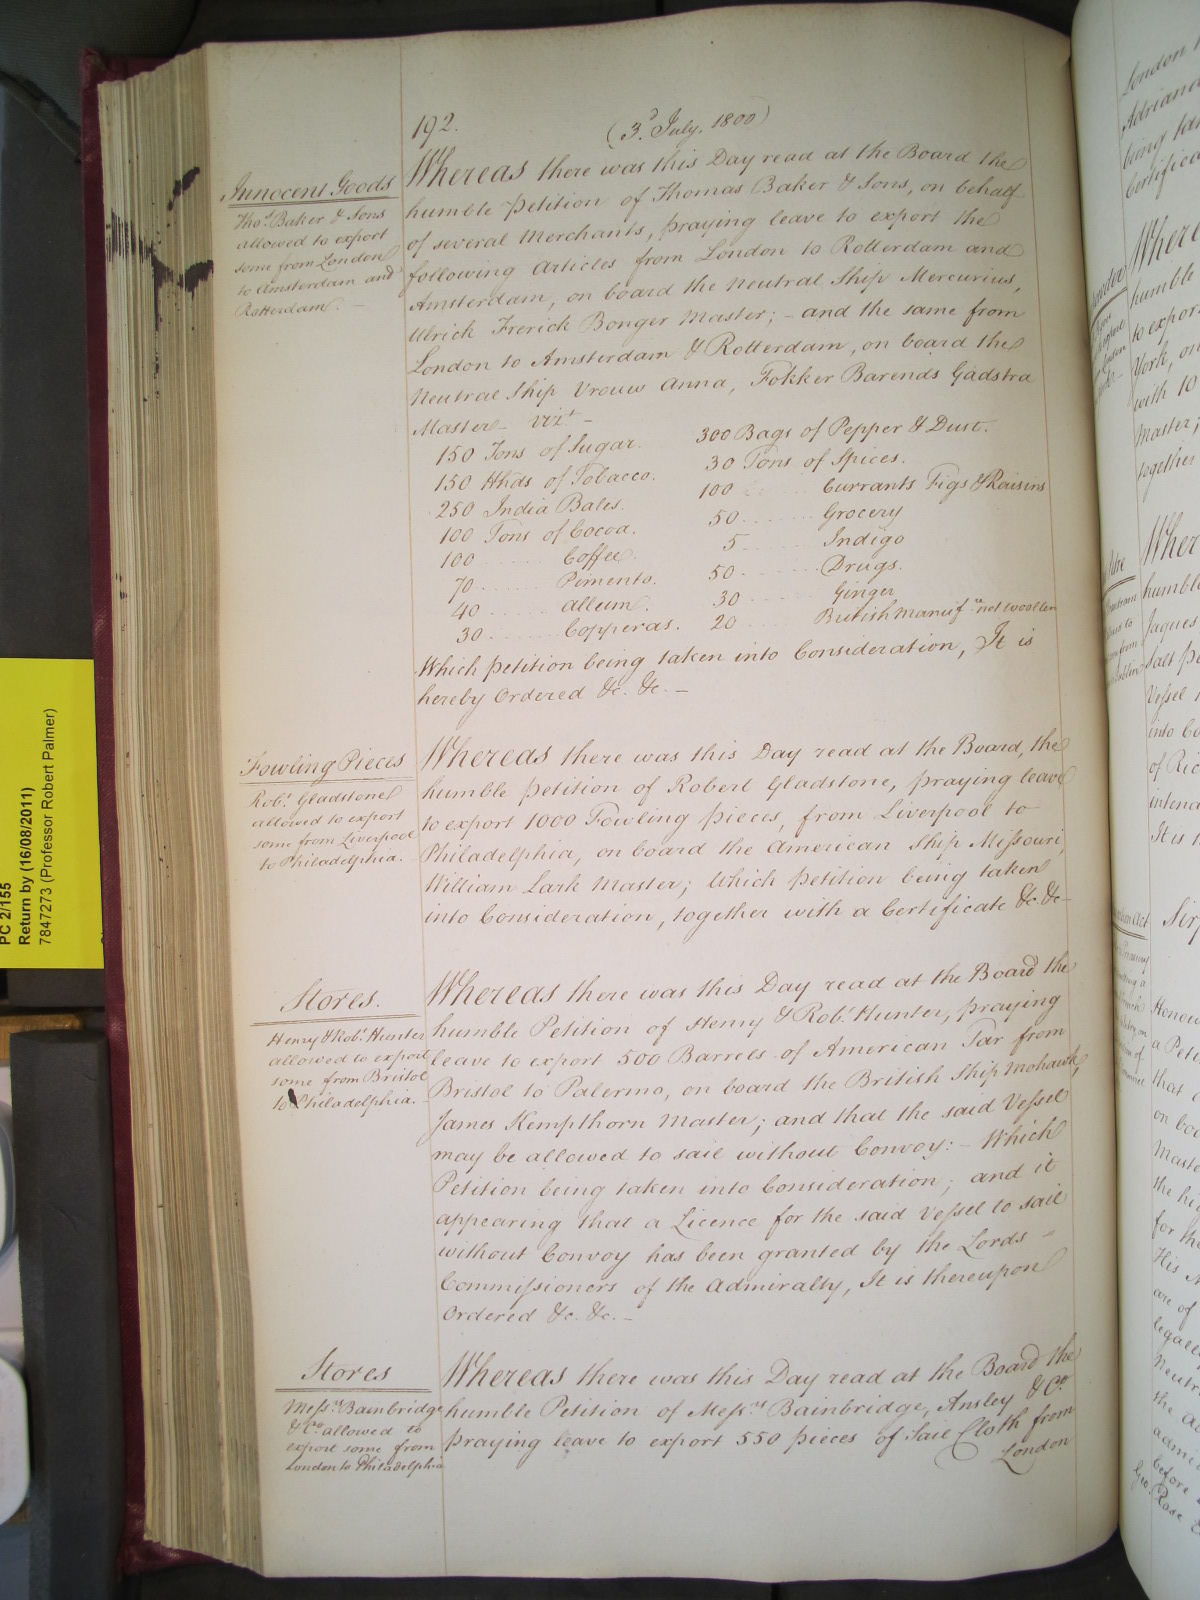 192.
(3.d July, 1800)
Innocent Goods
Thos. Baker & Sons
allowed to export
some from London
to Amsterdam and
Rotterdam. —
Whereas there was this Day read at the Board the
humble Petition of Thomas Baker & Sons, on behalf
of several Merchants, praying leave to export the
following Articles from London to Rotterdam and
Amsterdam, on board the Neutral Ship Mercurius,
Ulrick Frerick Bonger Master; – and the same from
London to Amsterdam & Rotterdam, on board the
Neutral Ship Vrouw Anna, Fokker Barends Gadstra
Master – Vizt. –
150 Tons of Sugar.
150 Hhds of Tobacco.
250 India Bales.
100 Tons of Cocoa.
100 ........ Coffee.
70 ........ Pimento.
40 ........ Allum.
30 ........ Copperas.
300 Bags of Pepper & Dust.
30 Tons of Spices.
100 ........ Currants Figs & Raisins
50 ........ Grocery
5 ........ Indigo
50 ........ Drugs.
30 ........ Ginger
20 ........ British Manufre. not woollen
Which Petition being taken into Consideration, It is
hereby Ordered &c. &c. —
Fowling Pieces
Robt. Gladstone
allowed to export
some from Liverpool
to Philadelphia. –
Whereas there was this Day read at the Board, the
humble Petition of Robert Gladstone, praying leave
to export 1000 Fowling pieces, from Liverpool to
Philadelphia, on board the American Ship Missouri,
William Lark Master; Which Petition being taken
into Consideration, together with a Certificate &c. &c –
Stores.
Henry & Robt. Hunter
allowed to export
some from Bristol
to Philadelphia.
Whereas there was this Day read at the Board the
humble Petition of Henry & Robt. Hunter, praying
leave to export 500 Barrels of American Tar from
Bristol to Palermo, on board the British Ship Mohawk,
James Kempthorn Master; and that the said Vessel
may be allowed to sail without Convoy: – Which
Petition being taken into Consideration; and it
appearing that a Licence for the said Vessel to sail
without Convoy has been granted by the Lords –
Commissioners of the Admiralty, It is thereupon
Ordered &c. &c. –
Stores
Messrs. Bainbridge
& Co. allowed to
export some from
London to Philadelphia
Whereas there was this Day read at the Board the
humble Petition of Messrs. Bainbridge, Ansley & Co.
praying leave to export 550 pieces of Sail Cloth from
London
PC 2/155
Return by (16/08/2011)
7847273 (Professor Robert Palmer)